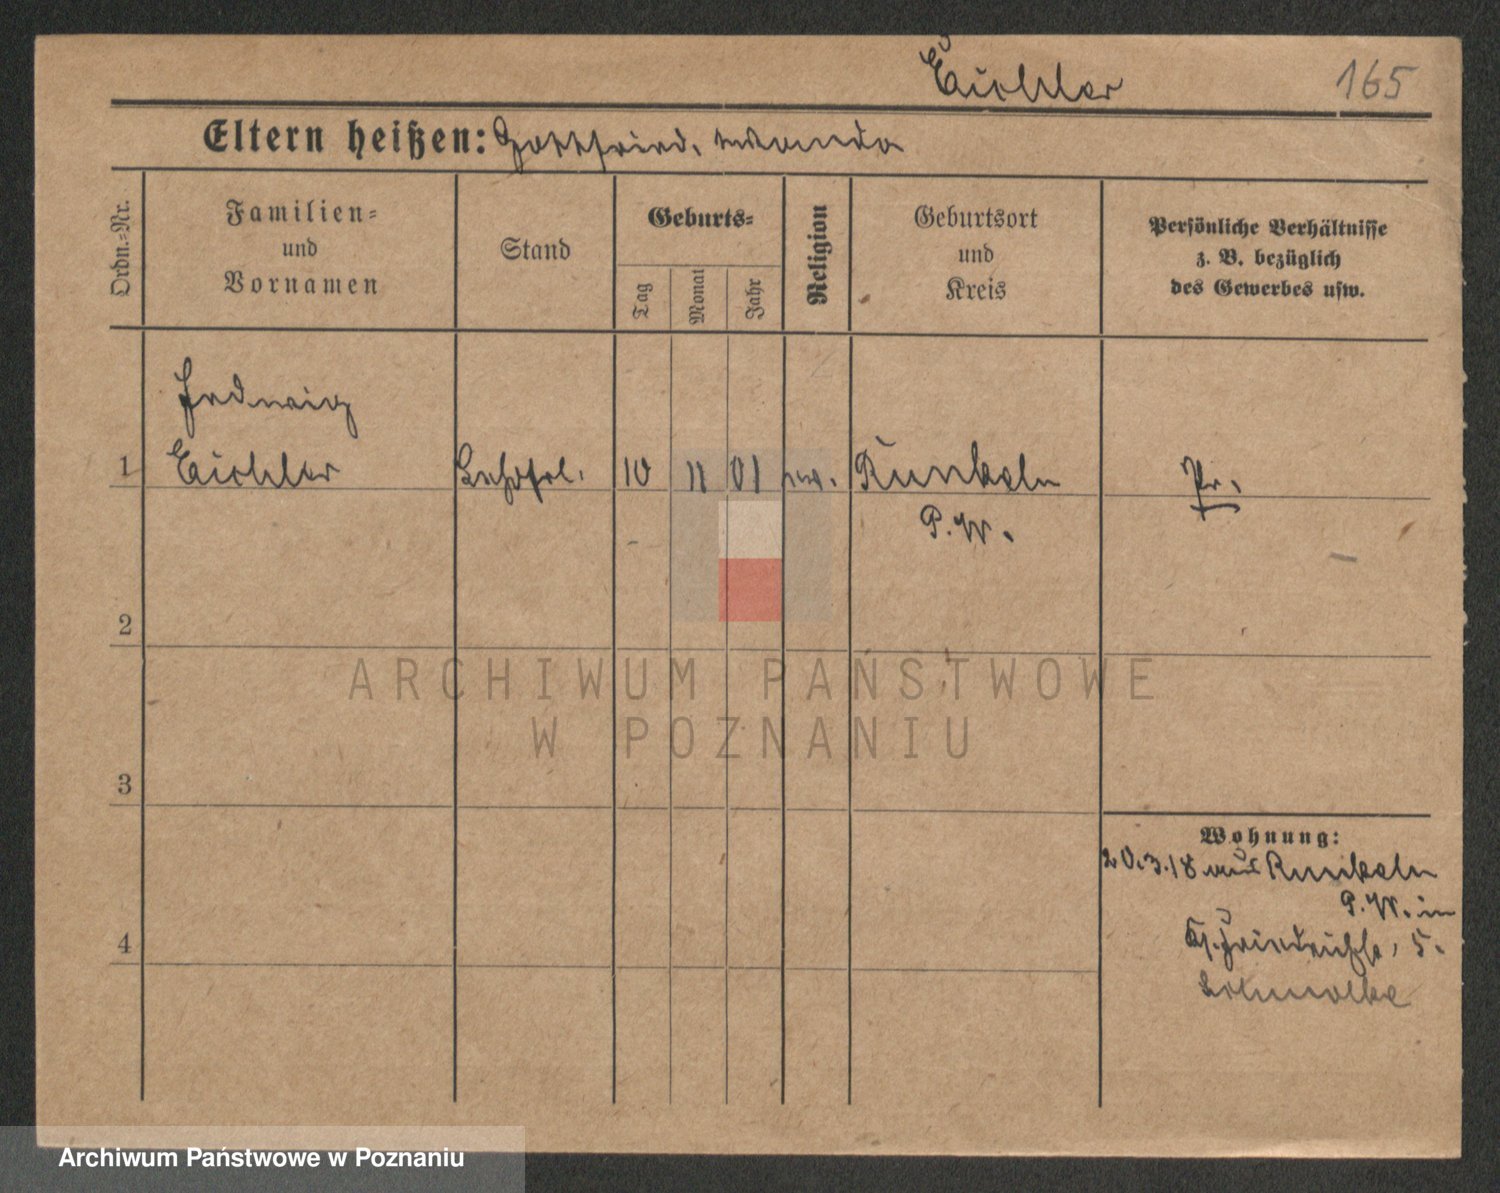 Eichler 165
Eltern heißen: Gottfried, Wanda
Ordn.=Nr.
Familien=
und
Vornamen
Stand
Geburts=
Tag
Monat
Jahr
Religion
Geburtsort
und
Kreis
Persönliche Verhältnisse
z. B. bezüglich
des Gewerbes usw.
Hedwig
1 Eichler Lehrfrl. 10 11 01 ev. Runkeln Pr.
P. W.
2
ARCHIWUM PAŃSTWOWE
W POZNANIU
3
Wohnung:
20.3.18 aus Runkeln
P. W. in
Friedrichstr. 5.
4
Archiwum Państwowe w Poznaniu